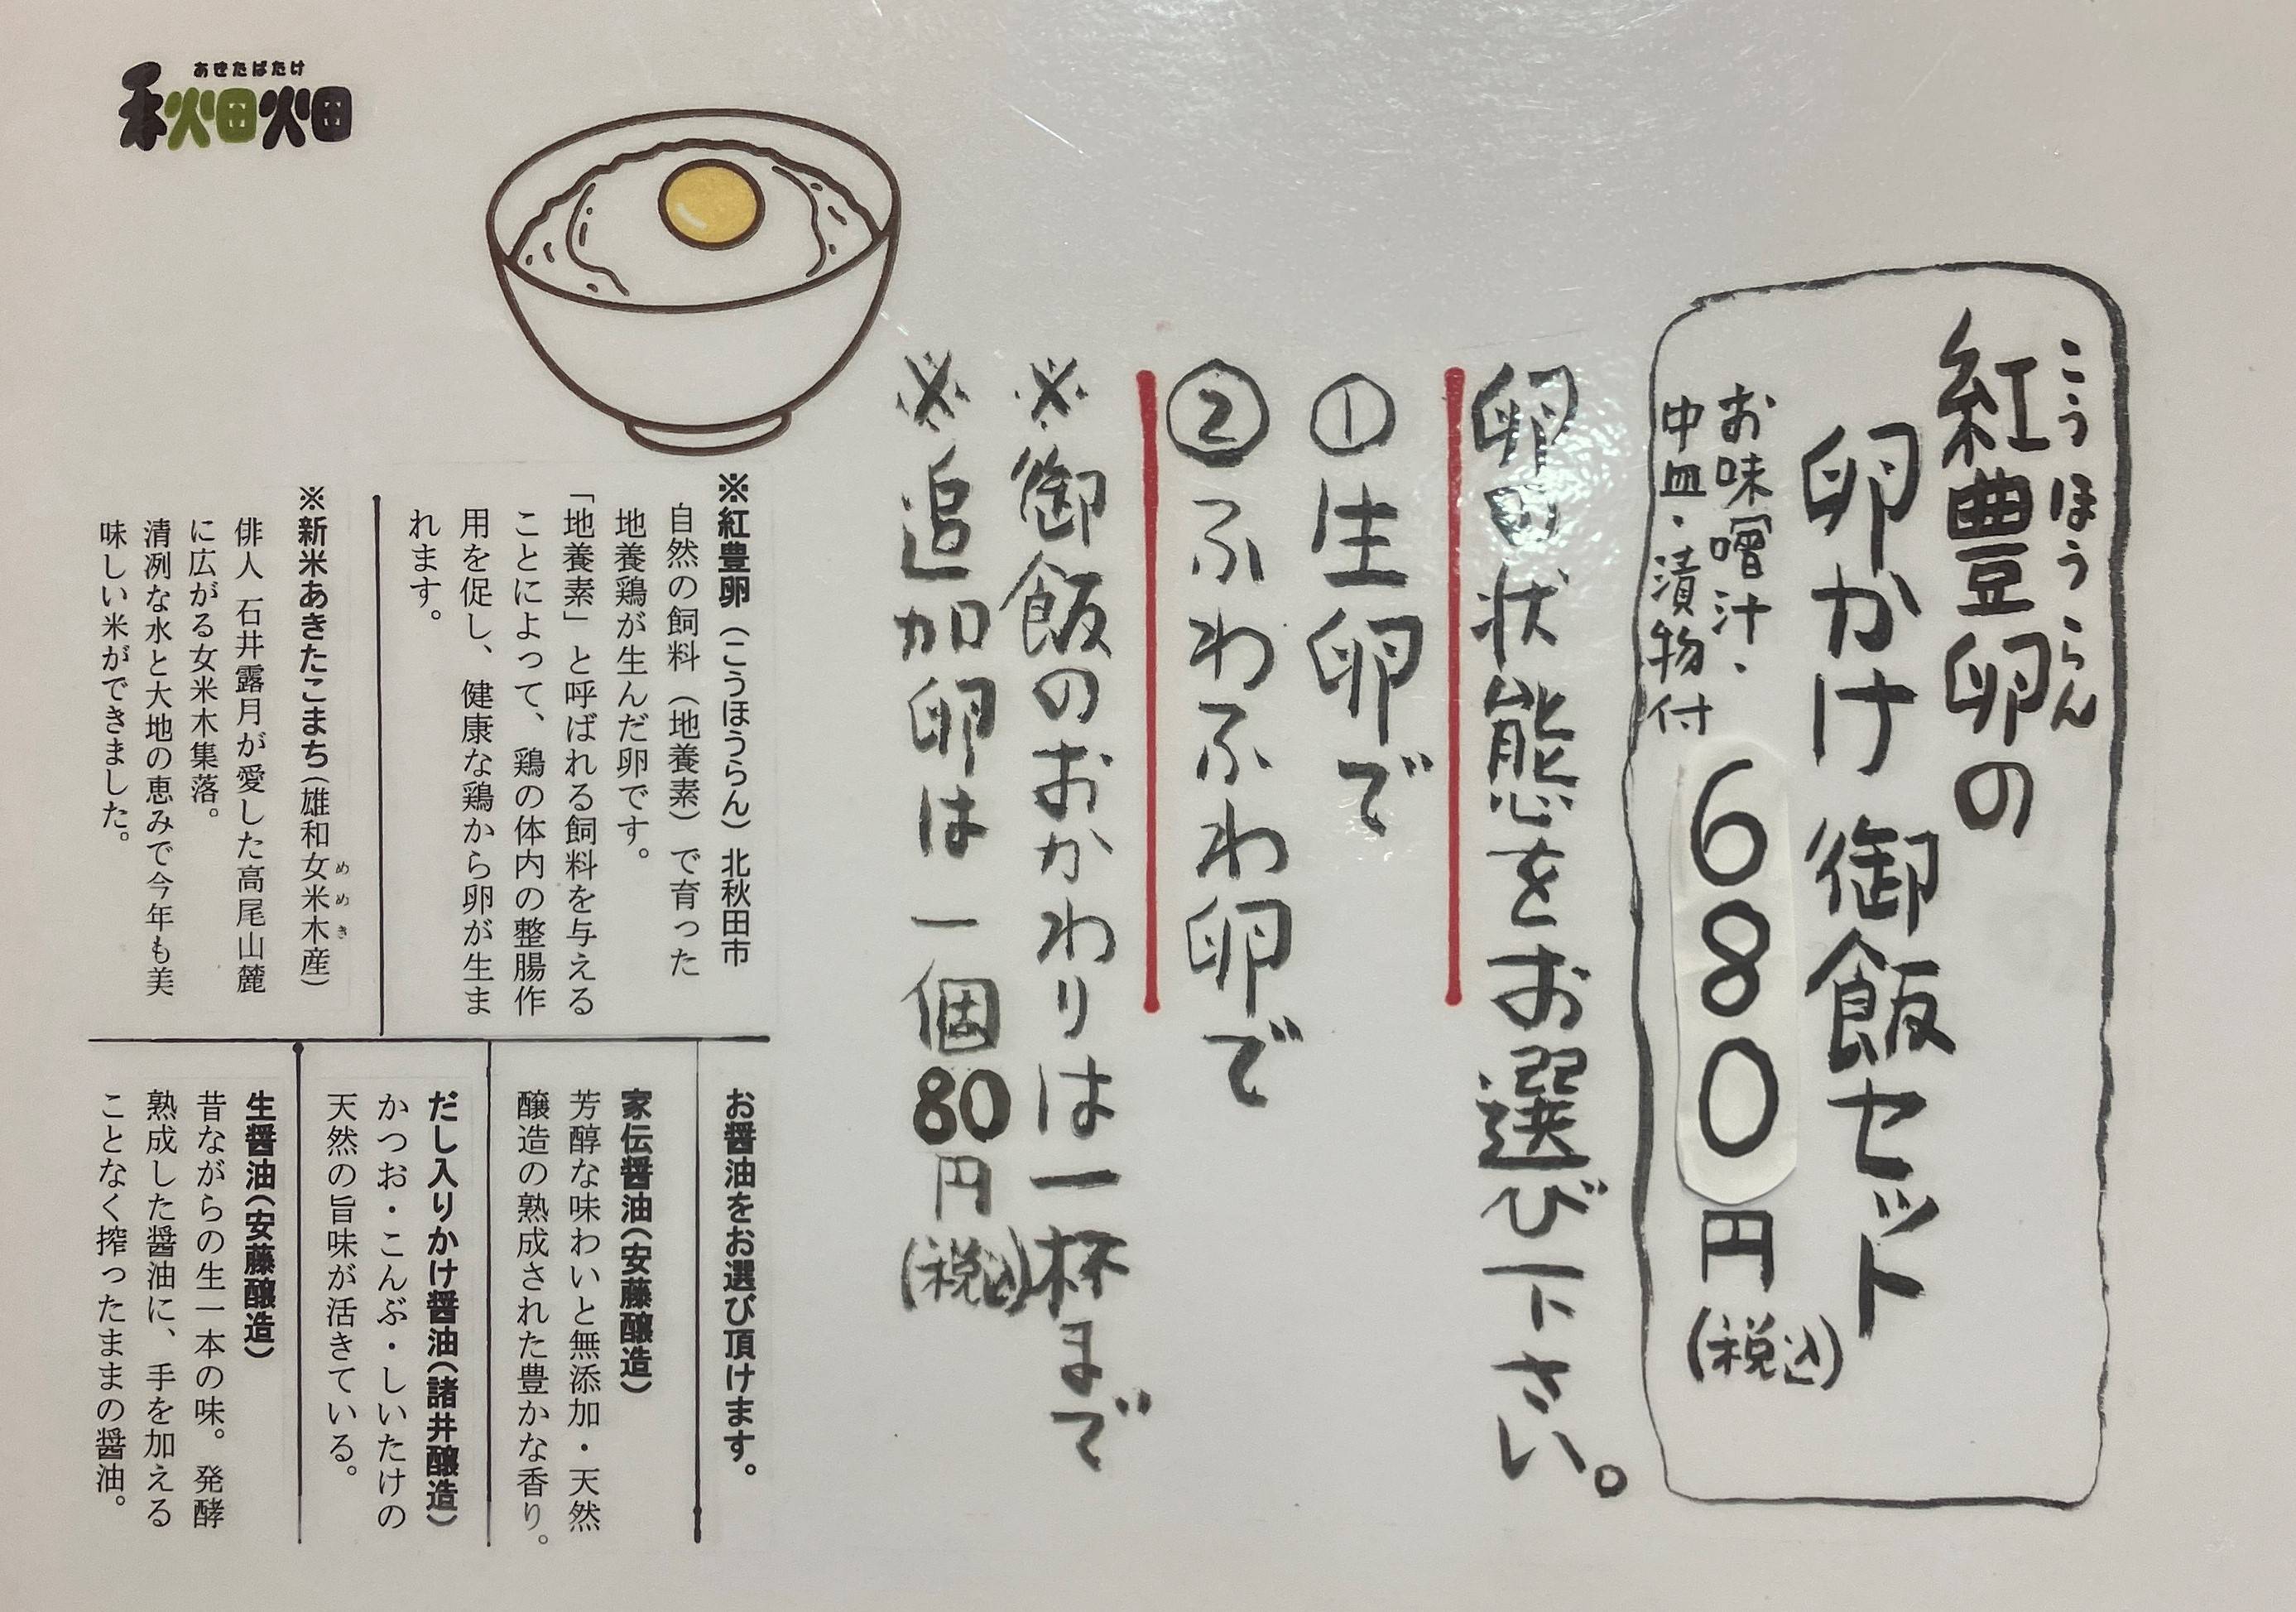 こうほうらん
紅豊卵の
卵かけ御飯セット
お味噌汁・
中皿・漬物付
680円(税込)
卵の状態をお選び下さい。
①生卵で
②ふわふわ卵で
※御飯のおかわりは一杯まで
※追加卵は一個80円(税込)
あきたばたけ
秋田畑
※紅豊卵(こうほうらん)北秋田市
自然の飼料(地養素)で育った
地養鶏が生んだ卵です。
「地養素」と呼ばれる飼料を与える
ことによって、鶏の体内の整腸作
用を促し、健康な鶏から卵が生ま
れます。
※新米あきたこまち(雄和女米木産)
めめき
俳人 石井露月が愛した高尾山麓
に広がる女米木集落。
清冽な水と大地の恵みで今年も美
味しい米ができました。
お醤油をお選び頂けます。
家伝醤油(安藤醸造)
芳醇な味わいと無添加・天然
醸造の熟成された豊かな香り。
だし入りかけ醤油(諸井醸造)
かつお・こんぶ・しいたけの
天然の旨味が活きている。
生醤油(安藤醸造)
昔ながらの生一本の味。発酵
熟成した醤油に、手を加える
ことなく搾ったままの醤油。